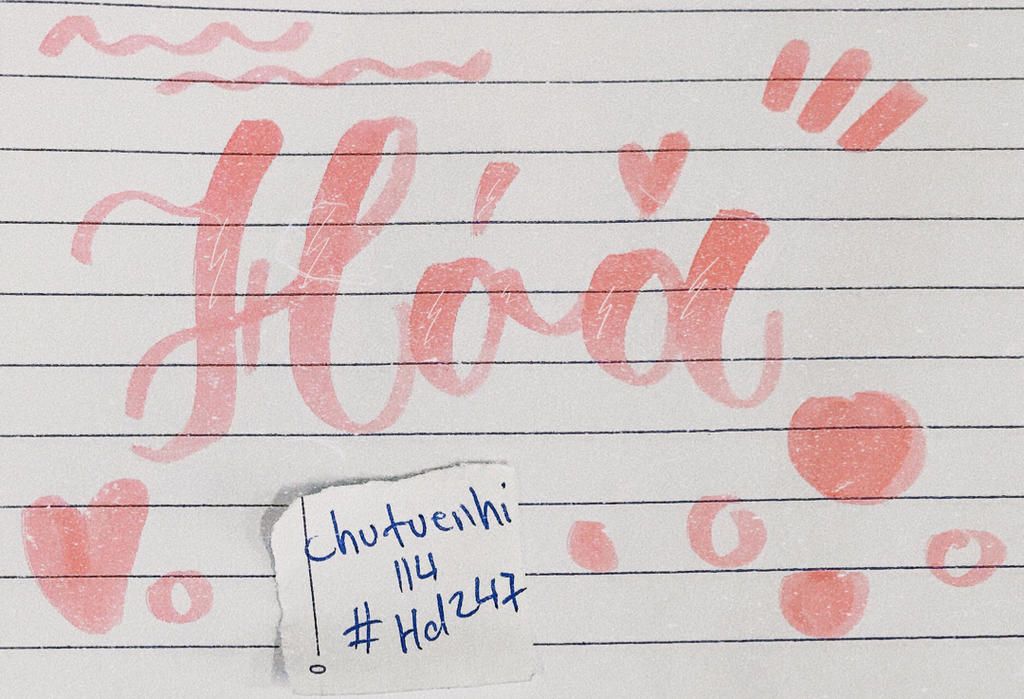 Hóa
chutuenhi
114
#Hd247